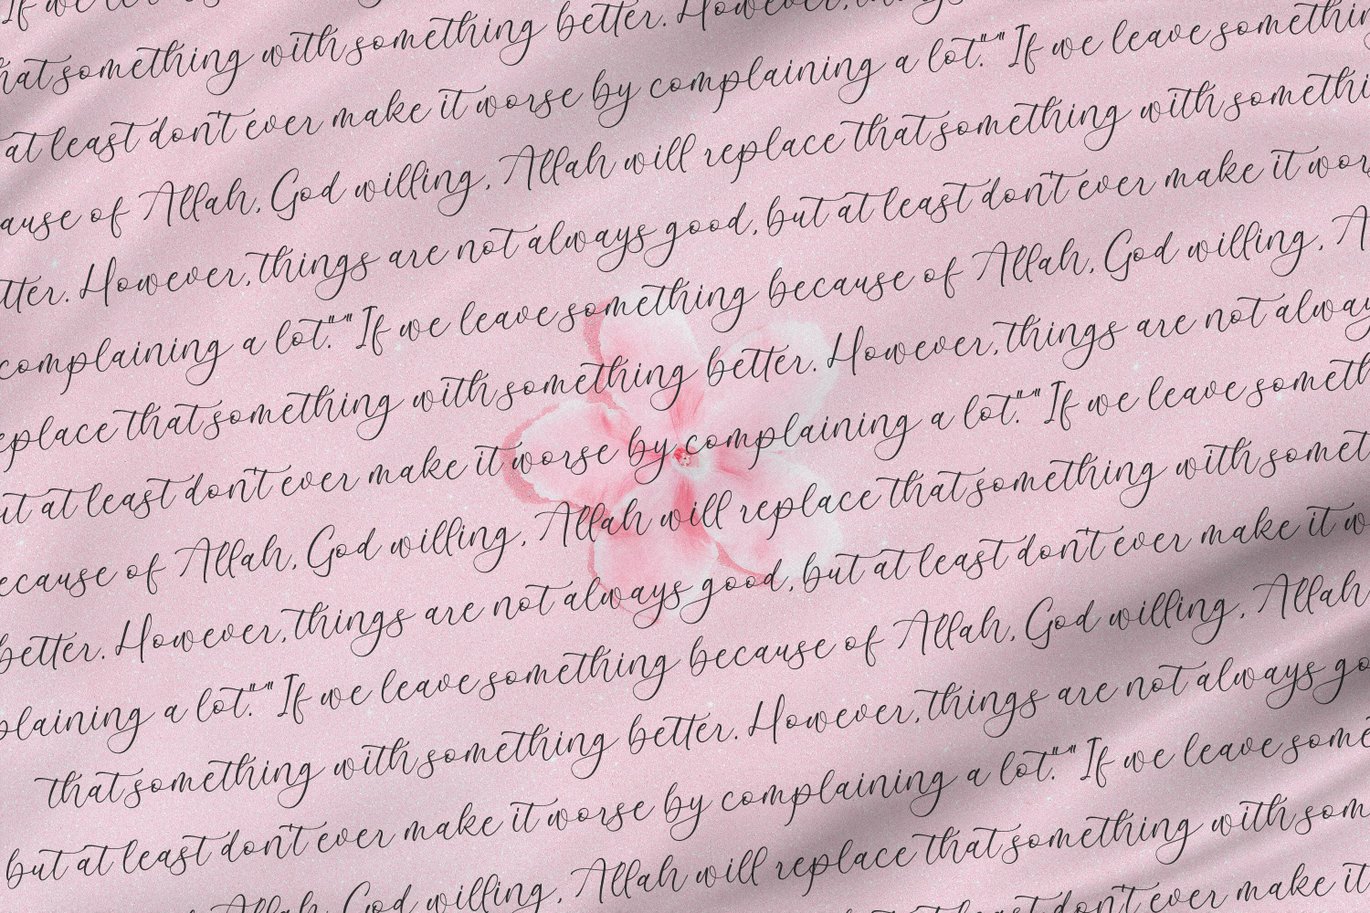 If we leave something
that something with something better. However, things
at least don't ever make it worse by complaining a lot." "If we leave something
ause of Allah, God willing, Allah will replace that something with somethi
tter. However, things are not always good, but at least don't ever make it wor
complaining a lot." "If we leave something because of Allah, God willing, A
eplace that something with something better. However, things are not alway
ut at least don't ever make it worse by complaining a lot." "If we leave someth
ecause of Allah, God willing, Allah will replace that something with somet
better. However, things are not always good, but at least don't ever make it w
plaining a lot." "If we leave something because of Allah, God willing, Allah
that something with something better. However, things are not always go
but at least don't ever make it worse by complaining a lot." "If we leave some
Allah, God willing, Allah will replace that something with som
at least don't ever make it